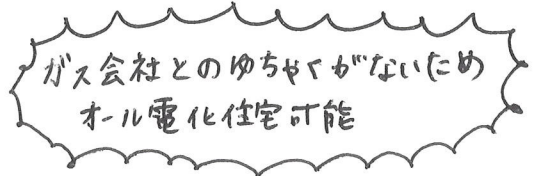 ガス会社とのゆちゃくがないため
オール電化住宅可能